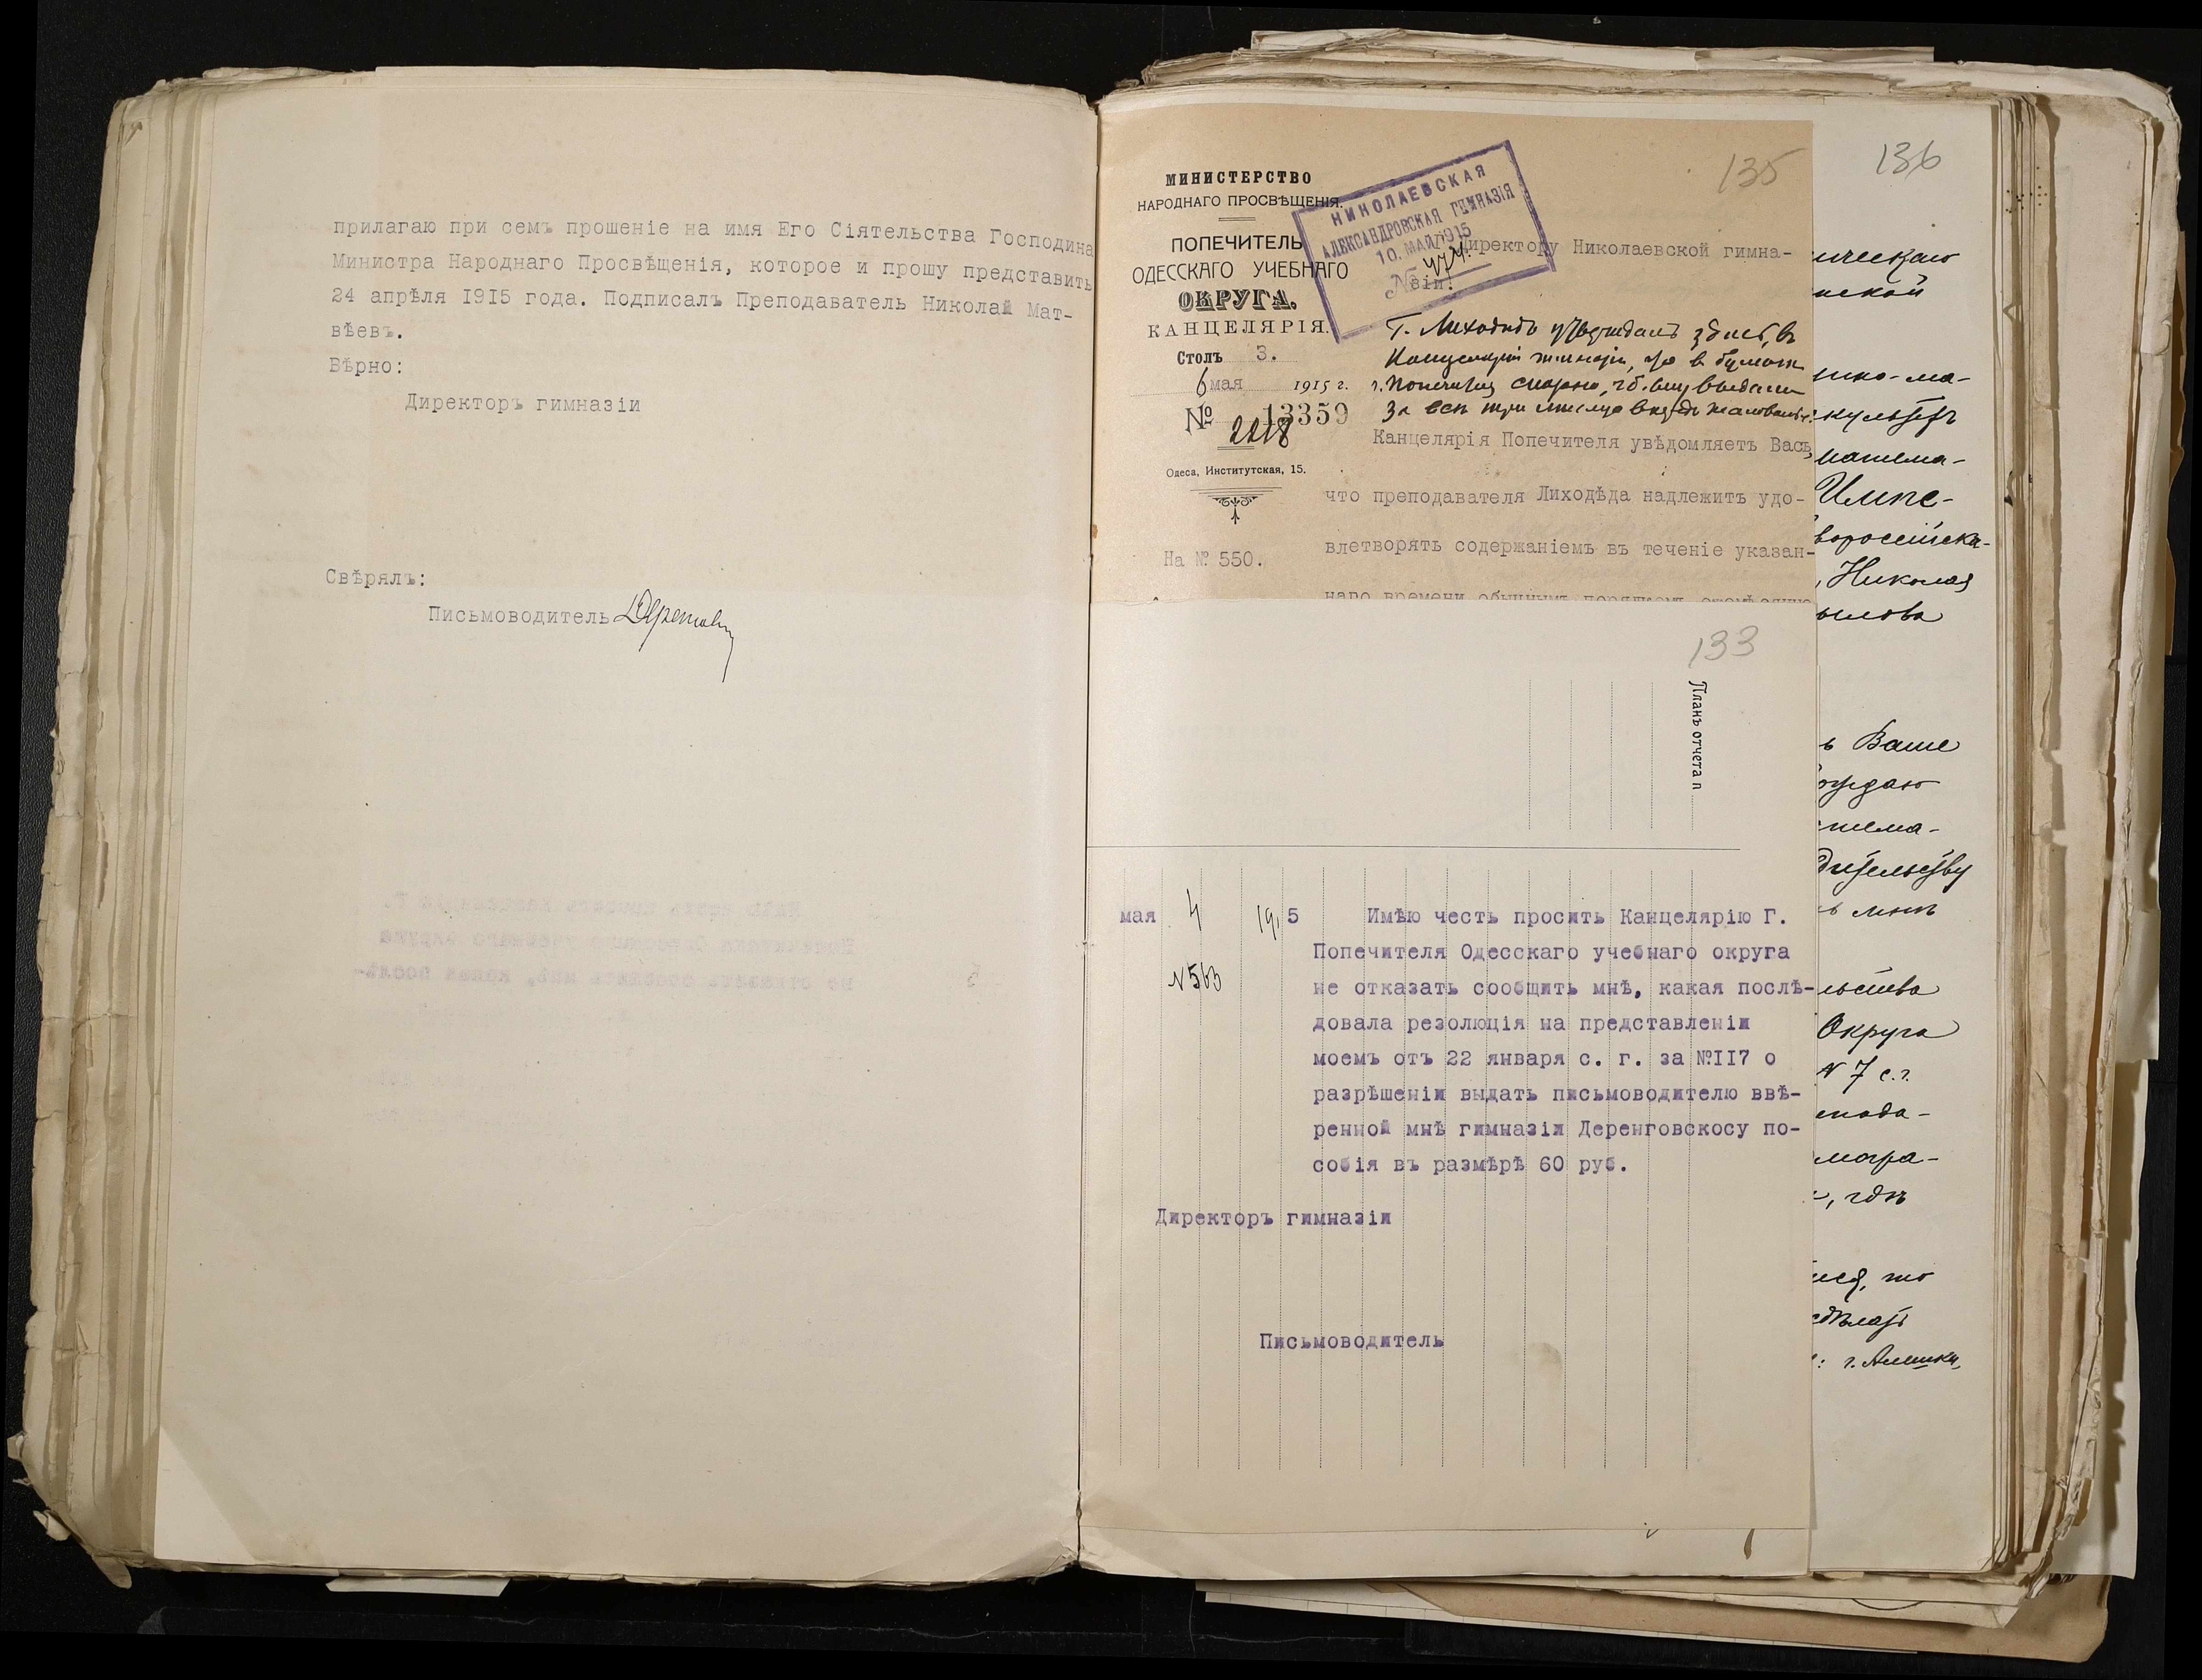 прилагаю при семъ прошеніе на имя Его Сіятельства Господина
Министра Народнаго Просвѣщенія, которое и прошу представить
24 апрѣля 1915 года. Подписалъ Преподаватель Николай Мат-
вѣевъ.
Вѣрно:
Директоръ гимназіи
Свѣрялъ:
Письмоводитель
135
МИНИСТЕРСТВО
НАРОДНАГО ПРОСВѢЩЕНІЯ.
ПОПЕЧИТЕЛЬ
ОДЕССКАГО УЧЕБНАГО
ОКРУГА.
КАНЦЕЛЯРІЯ.
Столъ 3.
6 мая 1915 г.
№ 13359
2218
Одеса, Институтская, 15.
На № 550.
НИКОЛАЕВСКАЯ
АЛЕКСАНДРОВСКАЯ ГИМНАЗІЯ
10. МАЯ 1915
№ 474
Директору Николаевской гимна-
зіи.
Г. Лиходѣдъ утверждаетъ здѣсь, въ
за всѣ три мѣсяца впередъ жалованье.
Канцелярія Попечителя увѣдомляетъ Васъ,
что преподавателя Лиходѣда надлежитъ удо-
влетворять содержаніемъ въ теченіе указан-
наго времени обычнымъ порядкомъ ежемѣсячно
133
Планъ отчета п
мая 4 1915
N 563
Имѣю честь просить Канцелярію Г.
Попечителя Одесскаго учебнаго округа
не отказать сообщить мнѣ, какая послѣ-
довала резолюція на представленіи
моемъ отъ 22 января с. г. за №II7 о
разрѣшеніи выдать письмоводителю ввѣ-
ренной мнѣ гимназіи Деренговскосу по-
собія въ размѣрѣ 60 руб.
Директоръ гимназіи
Письмоводитель
136
ической
нской
ико-ма-
культетъ
матема-
Импе-
вороссійска-
, Николая
ылова
ъ Ваше
ождаю
тема-
дительству
ъ мнѣ
льства
Округа
N 7 с.г.
пода-
, гдѣ
ися, то
сдѣлать
: г. Алешки,